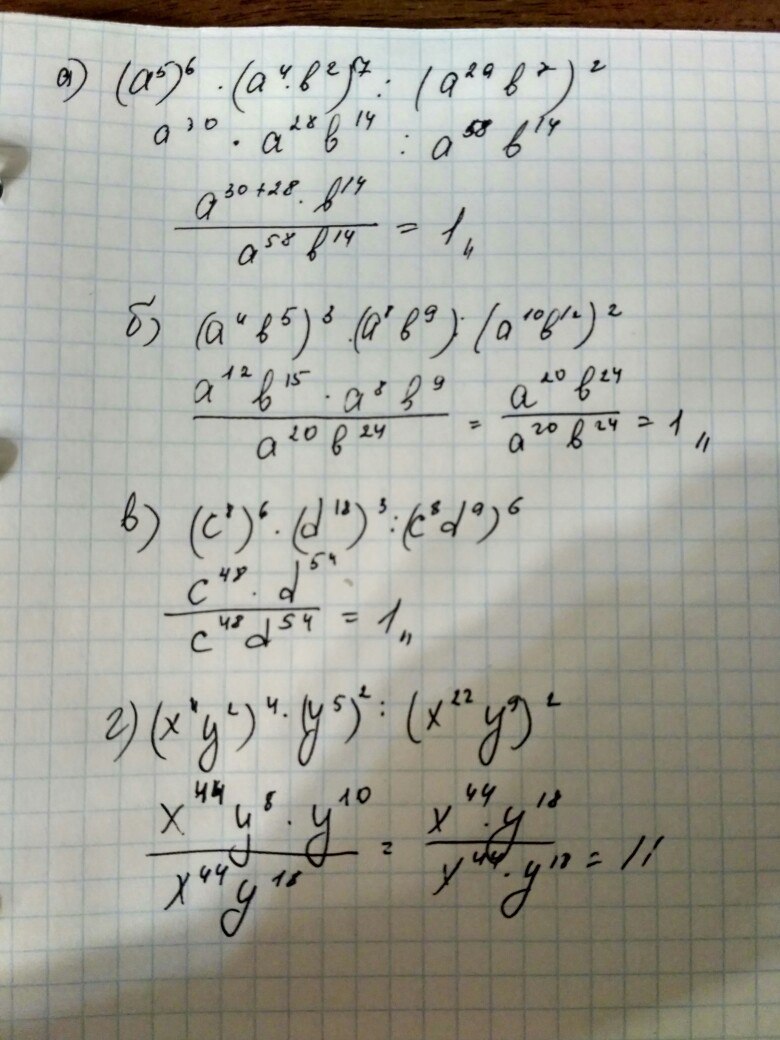 а) (a⁵)⁶ · (a⁴ · b²)⁷ : (a²⁹ b⁷)²
a³⁰ · a²⁸ b¹⁴ : a⁵⁸ b¹⁴
a³⁰⁺²⁸ · b¹⁴ / a⁵⁸ b¹⁴ = 1,,
б) (a⁴ b⁵)³ · (a⁸ b⁹) : (a¹⁰ b¹²)²
a¹² b¹⁵ · a⁸ b⁹ / a²⁰ b²⁴ = a²⁰ b²⁴ / a²⁰ b²⁴ = 1,,
в) (c⁸)⁶ · (d¹⁸)³ : (c⁸ d⁹)⁶
c⁴⁸ · d⁵⁴ / c⁴⁸ d⁵⁴ = 1,,
г) (x y²)⁴ · (y⁵)² : (x²² y⁹)²
x⁴⁴ y⁸ · y¹⁰ / x⁴⁴ y¹⁸ = x⁴⁴ · y¹⁸ / x⁴⁴ · y¹⁸ = 1,,